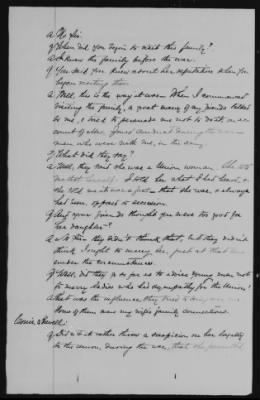 A No Sir.
Q When did you begin to visit this family?
A I knew the family before the war.
Q You said you knew about her reputation when you
began visiting them.
A Well, this is the way it was. When I commenced
visiting the family, a great many of my friends talked
to me, & tried to persuade me not to do it, on ac-
count of
men who were with me, in the army.
Q What did they say?
A Well, they said she was a Union woman. She
I told her what I had heard, &
she told me it was a fact that she was, & always
had been, opposed to secession.
Q And your friends thought you were too good for
her daughter?
A No they didn't think that, but they did n't
think I ought to marry her, just at that time
under the circumstances.
Q Well, did they go so far as to advise young men not
to marry ladies who had sympathy for the Union?
A That was the influence they tried to
Some of them were my wife's family connections.
Q Did n't it rather throw a suspicion on her loyalty
to the union, during the war, that she permitted